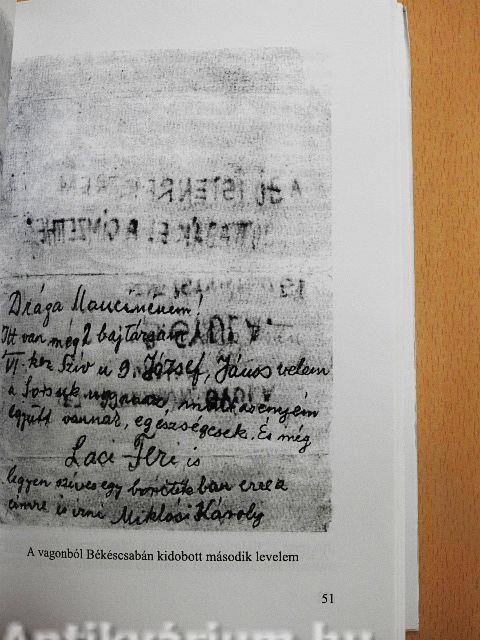 Drága Mancinénem!
Itt van még 2 bajtársam
VI. ker. Szív u 9. József, János velem
a Sorsuk ugyanaz, mint az enyém
együtt vannak, egészségesek. És még
Laci Feri is
legyen szíves egy borítékban erre a
címre is írni Miklósi Károly
A vagonból Békéscsabán kidobott második levelem
51
Antikvárium.hu